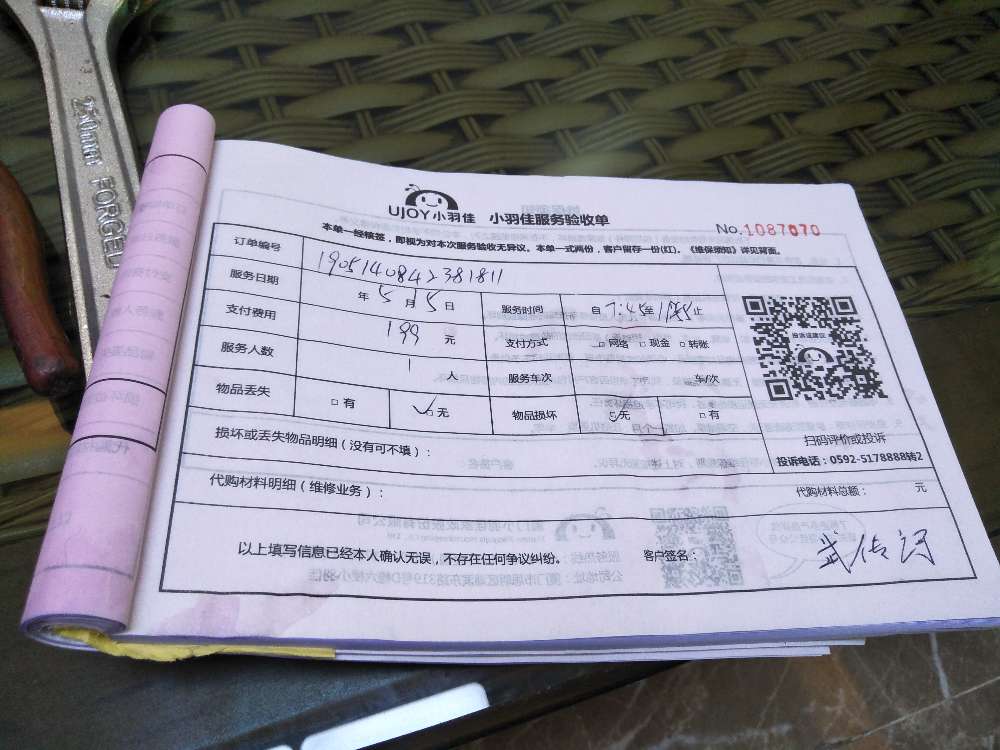 250mm FORGED
UJOY小羽佳 小羽佳服务验收单
No.1087070
本单一经核签，即视为对本次服务验收无异议。本单一式两份，客户留存一份(红)。《维保须知》详见背面。
订单编号 1905140842381811
服务日期 年 5 月 5 日 服务时间 自 7:45 至 止
支付费用 199 元 支付方式 □网络 □现金 □转账
服务人数 1 人 服务车次 车/次
物品丢失 □有 □无 物品损坏 无 □有
损坏或丢失物品明细（没有可不填）：
投诉或建议
扫码评价或投诉
投诉电话：0592-5178888转2
代购材料明细（维修业务）： 代购材料总额： 元
以上填写信息已经本人确认无误，不存在任何争议纠纷。 客户签名：